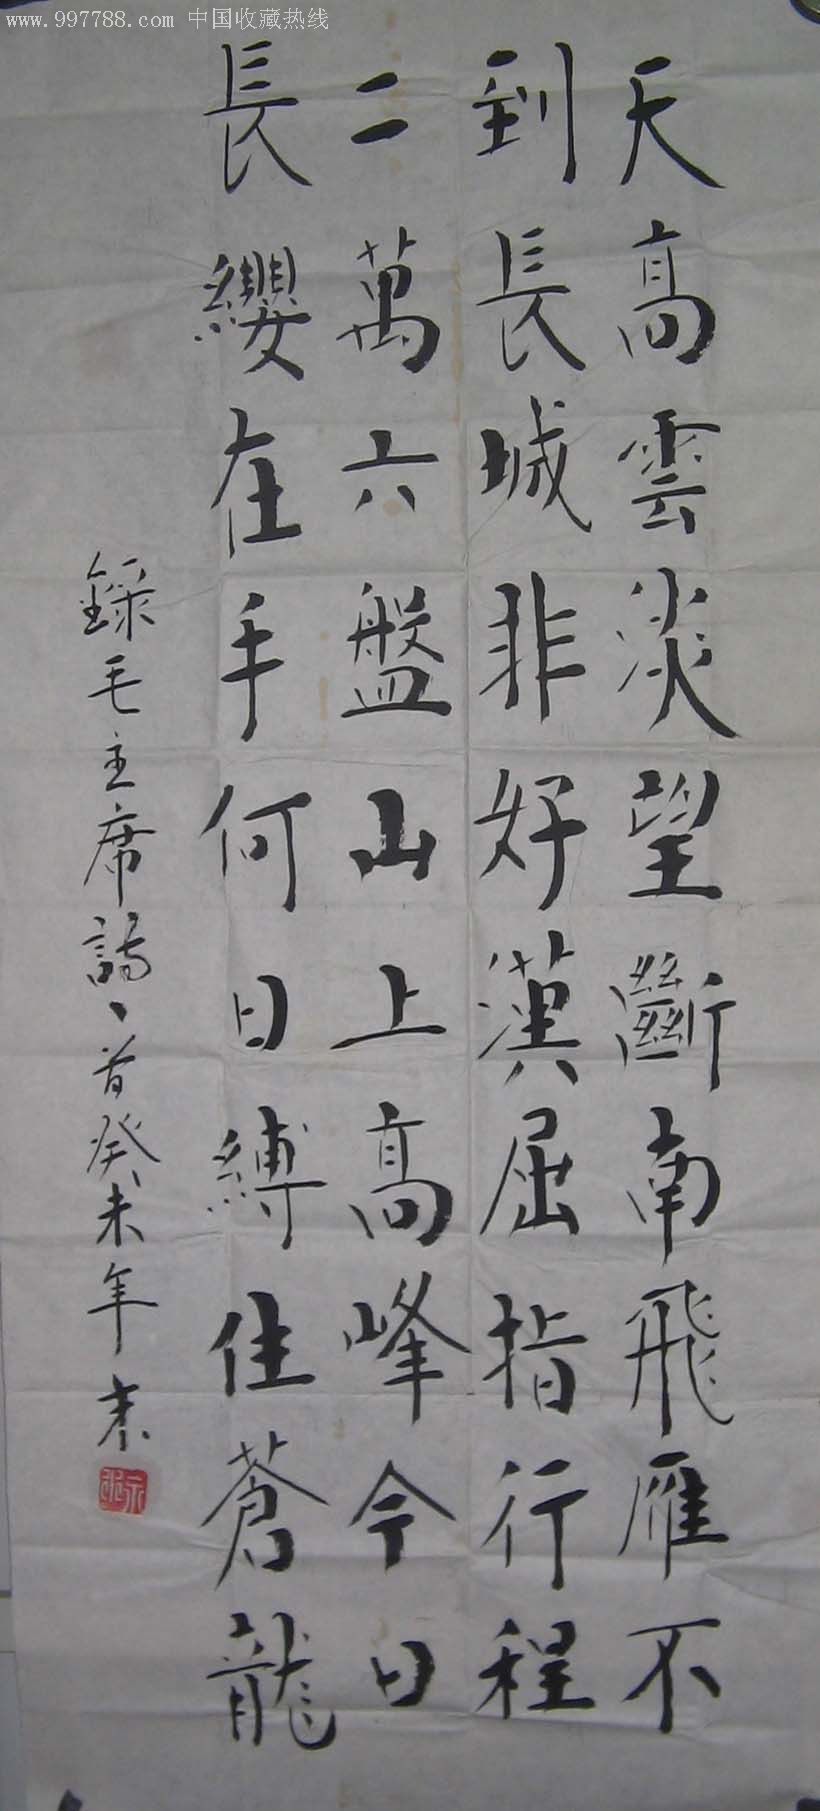 www.997788.com 中国收藏热线
天高雲淡望斷南飛雁不
到長城非好漢屈指行程
二萬六盤山上高峰今日
長纓在手何日縛住蒼龍
錄毛主席詩、首癸未年